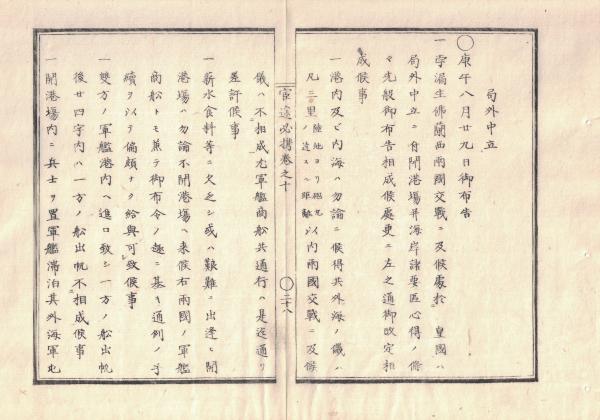 局外中立
◯庚午八月廿九日御布告
一孛漏生佛蘭西兩國交戰ニ及候處於　皇國ハ
局外中立ニ付開港場并海岸諸要區心得ノ條
々先般御布告相成候處更ニ左之通御改定相
成候事
一港内及ヒ内海ハ勿論ニ候得共外海ノ儀ハ
凡三里陸地ヨリ砲丸ノ達スル距離以内兩國交戰ニ及候
宦途必携巻之十
◯二十八
儀ハ不相成尤軍艦商船共通行ハ是迄通リ
差許候事
一薪水食料等ニ欠乏シ或ハ艱難ニ出逢ヒ開
港場ハ勿論不開港場ヘ来候右兩國ノ軍艦
商船トモ兼テ御布令ノ趣ニ基キ通例ノ手
續ヲ以テ偏頗ナク給與可致候事
一雙方ノ軍艦港内ヘ進口致シ一方ノ船出帆
後廿四字内ハ一方ノ船出帆不相成候事
一開港場内ニ兵士ヲ置軍艦滞泊其外海軍屯